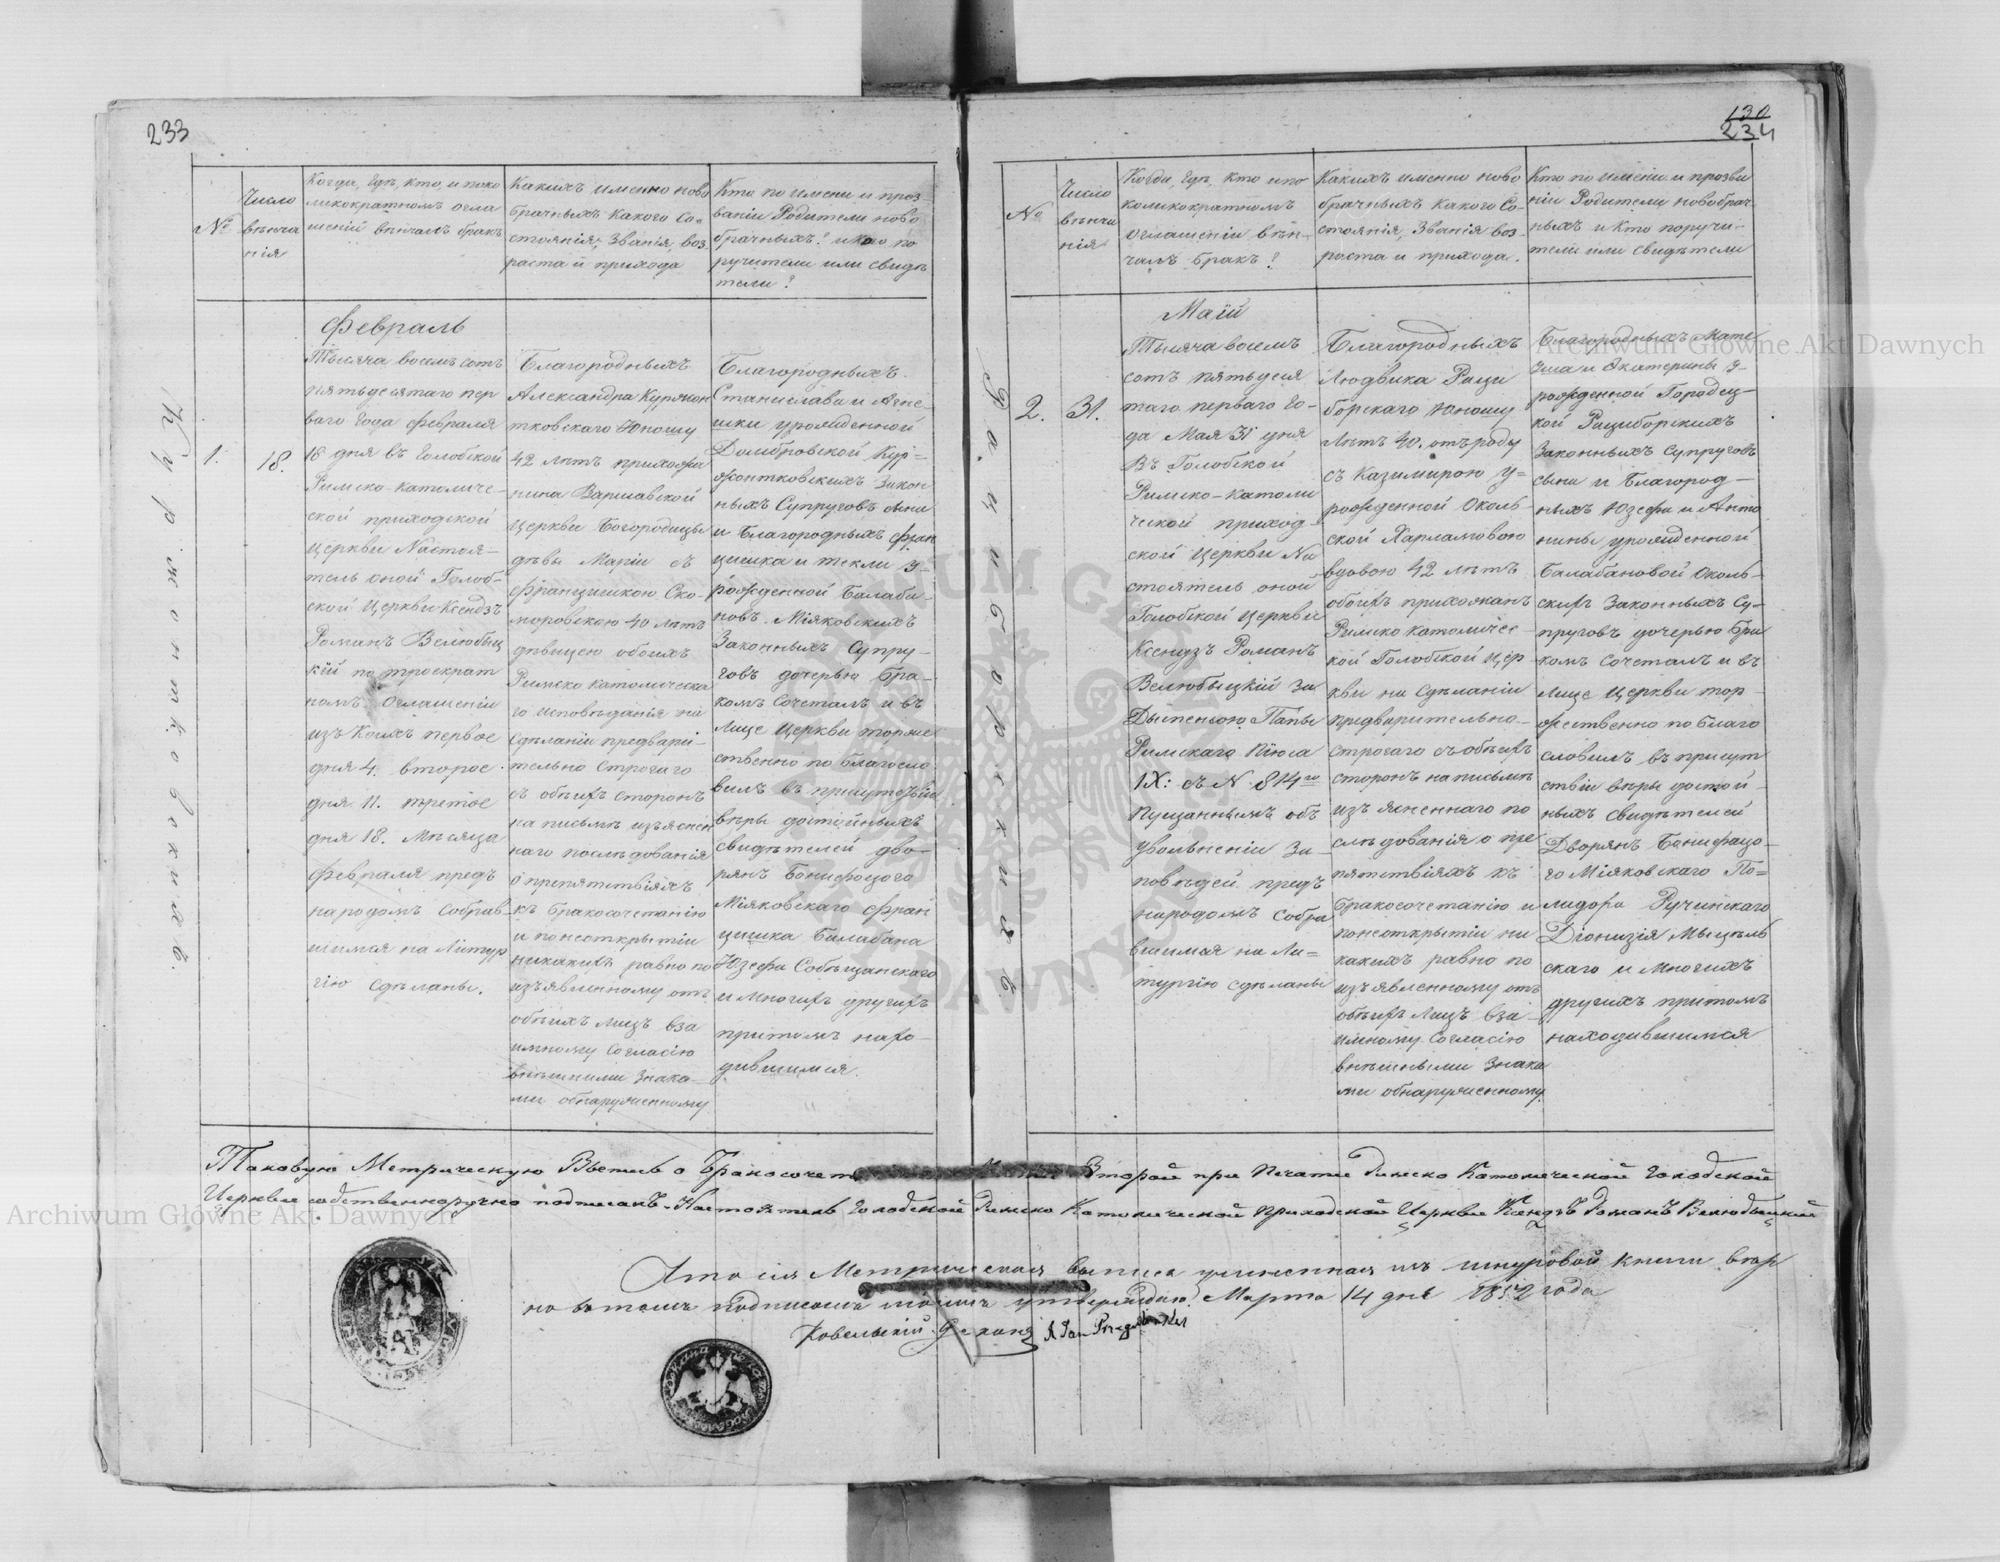 233
№
Число
вѣнча
нія
Когда, гдѣ, кто, и поко
ликократномъ огла
шеній вѣнчалъ бракъ
Какихъ именно ново
брачныхъ какого Со-
стоянія, Званія, воз
раста и прихода
Кто по имени и проз-
ваніи Родители ново
брачныхъ? и кто по
ручители или свидѣ
тели?
Куржонтковскихъ.
1.
18.
Февраль
Тысяча восемъ сотъ
пятьдесятаго пер
ваго года февраля
18 дня въ Голобской
Римско-католиче-
ской приходской
церкви Настоя-
тель оной Голоб-
ской Церкви Ксендзъ
Романъ Велюбыц
кій по троекрат
номъ Оглашеніи
изъ Коихъ первое
дня 4. второе
дня 11. третое
дня 18. Мѣсяца
Февраля предъ
народомъ Собрав-
шимся на Литур
гію сдѣланы.
Благородныхъ
Александра Куржон
тковскаго Юношу
42 лѣтъ прихожа
нина Варшавской
Церкви Богородицы
дѣвы Маріи съ
Францишкою Ско-
моровскою 40 лѣтъ
дѣвицею обоихъ
Римско католическа
го исповѣданія на
Сдѣланіи предвари-
тельно Строгаго
съ обѣихъ сторонъ
на письмѣ изъяснен
наго послѣдованія
о препятствіяхъ
къ бракосочетанію
и понеоткрытіи
никакихъ равно по
изъявленному отъ
обѣихъ лицъ вза
имному Согласію
внѣшними Знака-
ми обнаруженному
Благородныхъ
Станислава и Агне-
шки урожденной
Домбровской Кур-
жонтковскихъ Закон
ныхъ Супруговъ сына
и Благородныхъ Фран
цишка и Текли у-
рожденной Балаба-
новъ Міяковскихъ
Законныхъ Супру-
говъ дочерью Бра-
комъ Сочеталъ и въ
Лице Церкви торже
ственно по благосло
вилъ въ присутствіи
вѣры достойныхъ
Свидѣтелей дво-
рянъ Бонифацого
Міяковскаго Фран
цишка Балабана
Юзефа Собѣщанскаго
и Многихъ другихъ
притомъ нахо-
дившимся.
130
234
№
Число
вѣнча
нія
Когда, гдѣ, кто и по
коликократномъ
оглашеніи вѣн-
чалъ бракъ?
Какихъ именно ново
брачныхъ какого Со-
стоянія, Званія воз-
раста и прихода.
Кто по имени и прозва
ніи Родители новобрач
ныхъ и кто поручи-
тели или свидѣтели
Рациборскихъ.
2.
31.
Маій
Тысяча восемъ
сотъ пятьдеся
таго перваго Го-
да Мая 31 дня
Въ Голобской
Римско-католи
ческой приход-
ской церкви На
стоятель оной
Голобской Церкви
Ксендзъ Романъ
Велюбыцкій За
Дыпенсою Папы
Римскаго Піюса
IX: съ N 814го
Пущаннымъ объ
увольненіи За-
повѣдей предъ
народомъ Собра
вшимся на Ли-
тургію сдѣланы
Благородныхъ
Людвика Раци
борскаго Юношу
Лѣтъ 40. отъ роду
съ Казимирою у-
рожденной Околь-
ской Харламовою
вдовою 42 лѣтъ
обоихъ прихожанъ
Римско католичес
кой Голобской Цер
кви на Сдѣланіи
предварительно
строгаго съ обѣихъ
сторонъ на письмѣ
изъ ясненнаго по
слѣдованія о пре
пятствіяхъ къ
бракосочетанію и
понеоткрытіи ни
какихъ равно по
изъявленному отъ
обѣихъ Лицъ вза-
имному Согласію
внѣшными Знака
ми обнаруженному.
Благородныхъ Мате
уша и Екатерины у-
рожденной Городец-
кой Рациборскихъ
Законныхъ супруговъ
сына и Благород-
ныхъ Юзефа и Анто
нины урожденной
Балабановой Околь-
скихъ Законныхъ Су-
пруговъ дочерью бра
комъ Сочеталъ и въ
Лице церкви тор-
жественно по благо
словилъ въ присут
ствіи вѣры достой-
ныхъ свидѣтелей
Дворянъ Бонифацо-
го Міяковскаго По-
лидора Ручинскаго
Діонизія Мыцѣль
скаго и Многихъ
другихъ притомъ
находившимся
Таковую Метрическую Выпись о Бракосочет Второй при Печати Римско Католической Голобской
Церкви собственноручно подписалъ. Настоятель Голобской Римско Католической Приходской Церкви Ксендзъ Романъ Велюбыцкій
Что сія Метрическая выписъ учиненная изъ шнуровой книги вѣр
но въ томъ подписомъ моимъ утверждаю. Марта 14 дня 1852 года
Ковельскій Деканъ X Jan
Archiwum Główne Akt Dawnych
Archiwum Główne Akt Dawnych